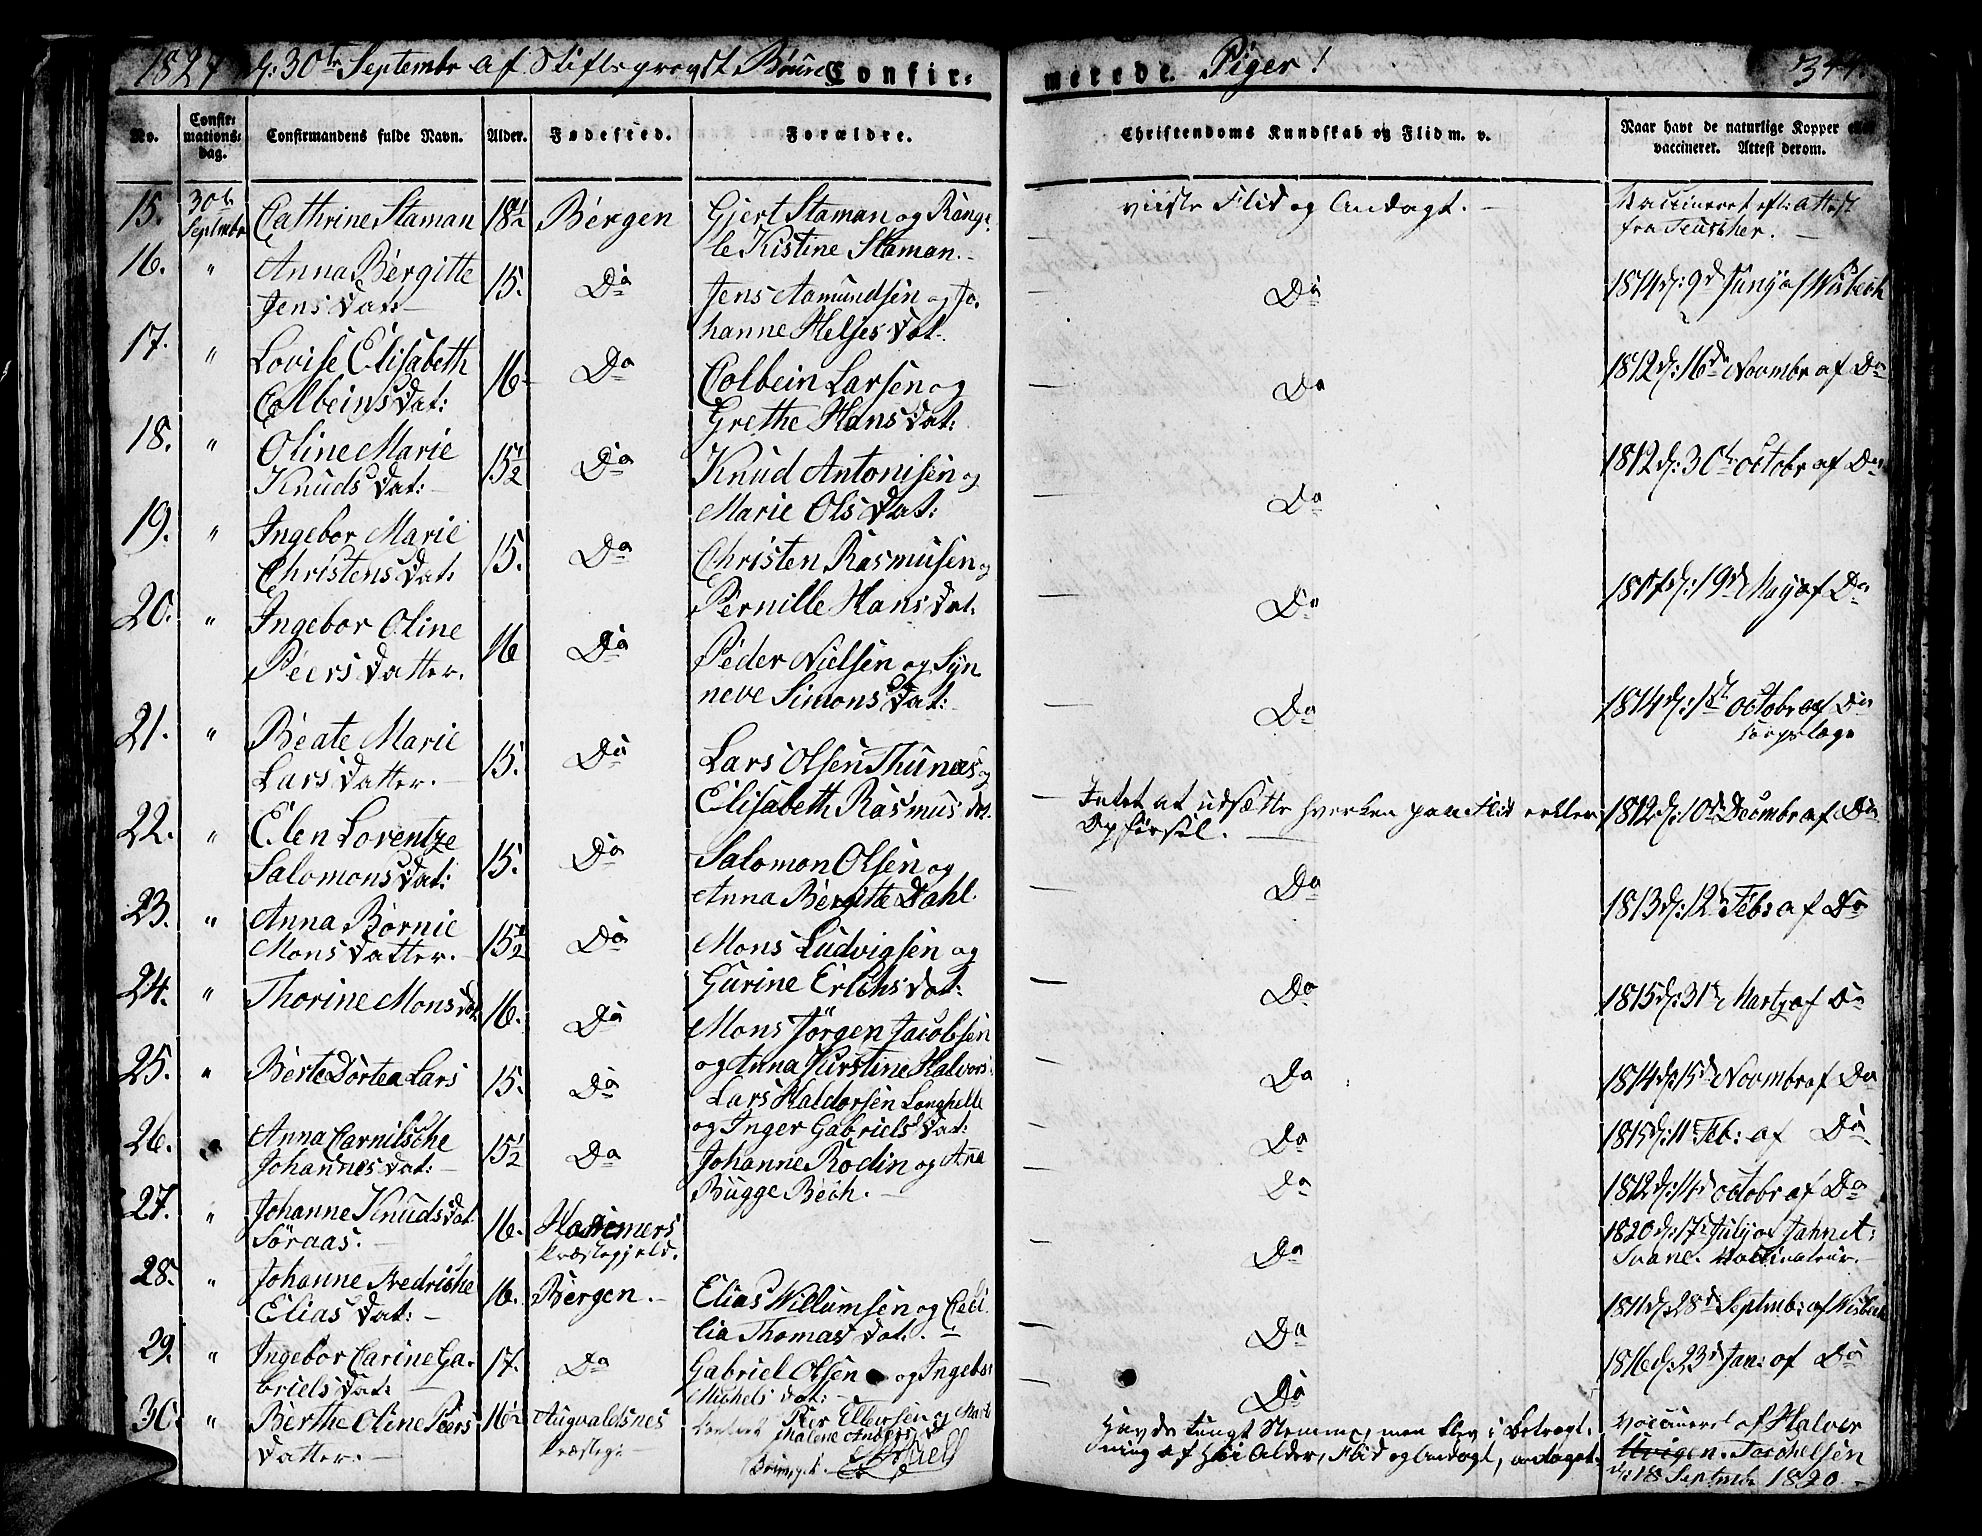 1827 d: 30te Septembr af Stiftsprovst Confir=
merede Piger!
No.
Confirmationsdag.
Confirmandens fulde Navn.
Alder.
Fødested.
Forældre.
Christendoms Kundskab og Flid m. v.
Naar havt de naturlige Kopper eller vaccineret. Attest derom.
15. 30te Septembr Cathrine Staman 18½ Bergen Gjert Staman og Range
le Kistine Staman. viiste Flid og Andagt. Vaccineret eft: attest
fra
16. " Anna Bergitte
Jens Dat: 15. Do Jens Aamundsen og Jo
hanne Helges Dat. Do 1814 d: 9d Juny af Wisbech
17. " Lovise Elisabeth
Colbeins Dat: 16 Do Colbein Larsen og
Grethe Hans Dat: Do 1812 d: 16de Novmbr af Do
18. " Oline Marie
Knuds Dat: 15½ Do Knud Antonisen og
Marie Ols Dat: Do 1812 d: 30te octobr af Do
19. " Ingebor Marie
Christens Dat: 15. Do Christen Rasmusen og
Pernille Hans Dat. Do 19d May af Do
20. " Ingebor Oline
Peers Datter. 16 Do Peder Nielsen og Syn
neve Simons Dat: Do 1814 d: 1ste octobr af Do
21. " Beate Marie
Lars Datter. 15. Do Lars Olsen Thunæs og
Elisabeth Rasmus Dat. Intet at udsætte hverken paa Flid eller
Opførsel. 1812 d: 10de Decmbr af Do
22. " Elen Lorentze
Salomons Dat: 15. Do Salomon Olsen og
Anna Bergitte Dahl. Do 1813 d: 12te Feb: af Do
23. " Anna Bornie
Mons Datter. 15½ Do Mons Ludvigsen og
Gurine Erichs Dat: Do 1815 d: 31te Marty af Do
24. " Thorine Mons Dat. 16. Do Mons Jörgen Jacobsen
og Anna Kirstine Halvors: Do 1814 d: 15d Novmbr af Do
25. " Berte Dortea Lars 15. Do Lars Haldorsen Langhelle
og Inger Gabriels Dat: Do 1815 d: 11te Feb: af Do
26. " Anna Carnilsche
Johannes Dat: 15½ Do Johanne Rodin og Ana
Bugge Bech. Do 1812 d: 14d octobr af Do
27. " Johanne Knuds Dat
Söraas. 16. Hammers
Præstegjeld. Do 1820 d: 17d July af Jahnet:
Svane. Vaccinateur.
28. " Johanne Fredriche
Elias Dat: 16. Bergen. Elias Willumsen og Ceci
lia Thomas Dat. Do 1811 d: 28d Septmb: af Wisbech
29. " Ingebor Carine Ga=
briels Dat: 17. Do Gabriel Olsen og Ingebor
Michels Dat: Do 1816 d: 23d Jan: af Do
30. " Berthe Oline Peers
Datter. 16½ Augvaldsnes
Præsteg: Per Ellersen og
Malene Havde tungt Nemme, men blev i Betragt=
ning af høi Alder, Flid og Andagt, antaget. vaccineret af Halvor
Jacobelsen
d: 18 Septmbr 1820.